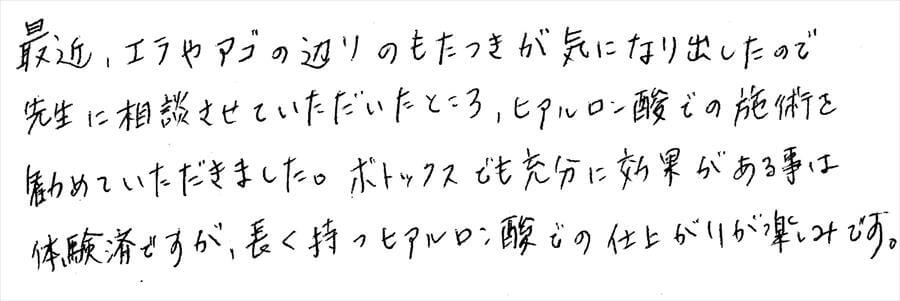 最近、エラやアゴの辺りのもたつきが気になり出したので
先生に相談させていただいたところ、ヒアルロン酸での施術を
勧めていただきました。ボトックスでも充分に効果がある事は
体験済ですが、長く持つヒアルロン酸での仕上がりが楽しみです。